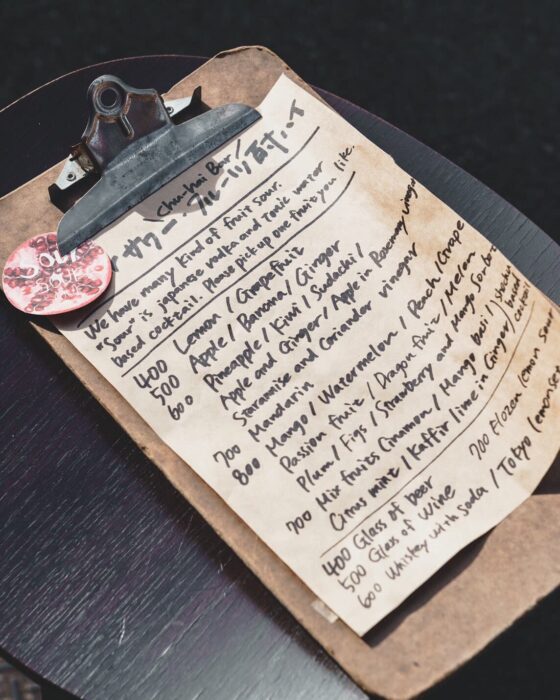 Chu-hai Bar
サワー / フルーツ
We have many kind of fruit sour.
"Sour" is japanese vodka and tonic water
based cocktail. Please pick up one fruit you like.
400 Lemon / Grapefruit
500 Apple / Banana / Ginger
600 Pineapple / Kiwi / Sudachi /
Apple and Ginger / Apple in Rosemary vinegar
Staranise and Coriander vinegar
700 Mandarin
800 Mango / Watermelon / Peach / Grape
Passion fruit / Dragon fruit / Melon
Plum / Figs / Strawberry and Mango Sorbet
700 Mix fruits Cinnamon / Mango basil /
Citrus mint / Kaffir lime in Ginger /
700 Flozen lemon sour
400 Glass of beer
500 Glass of Wine
600 Whiskey with Soda / Tokyo lemonade